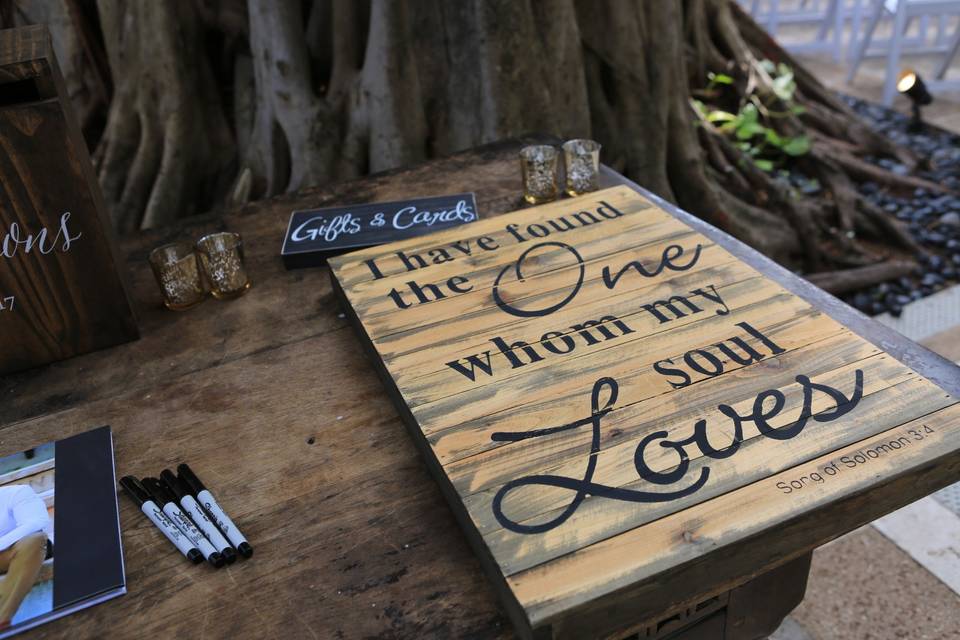 Gifts & Cards
I have found
the One
whom my
soul
Loves
Song of Solomon 3:4
ons
17